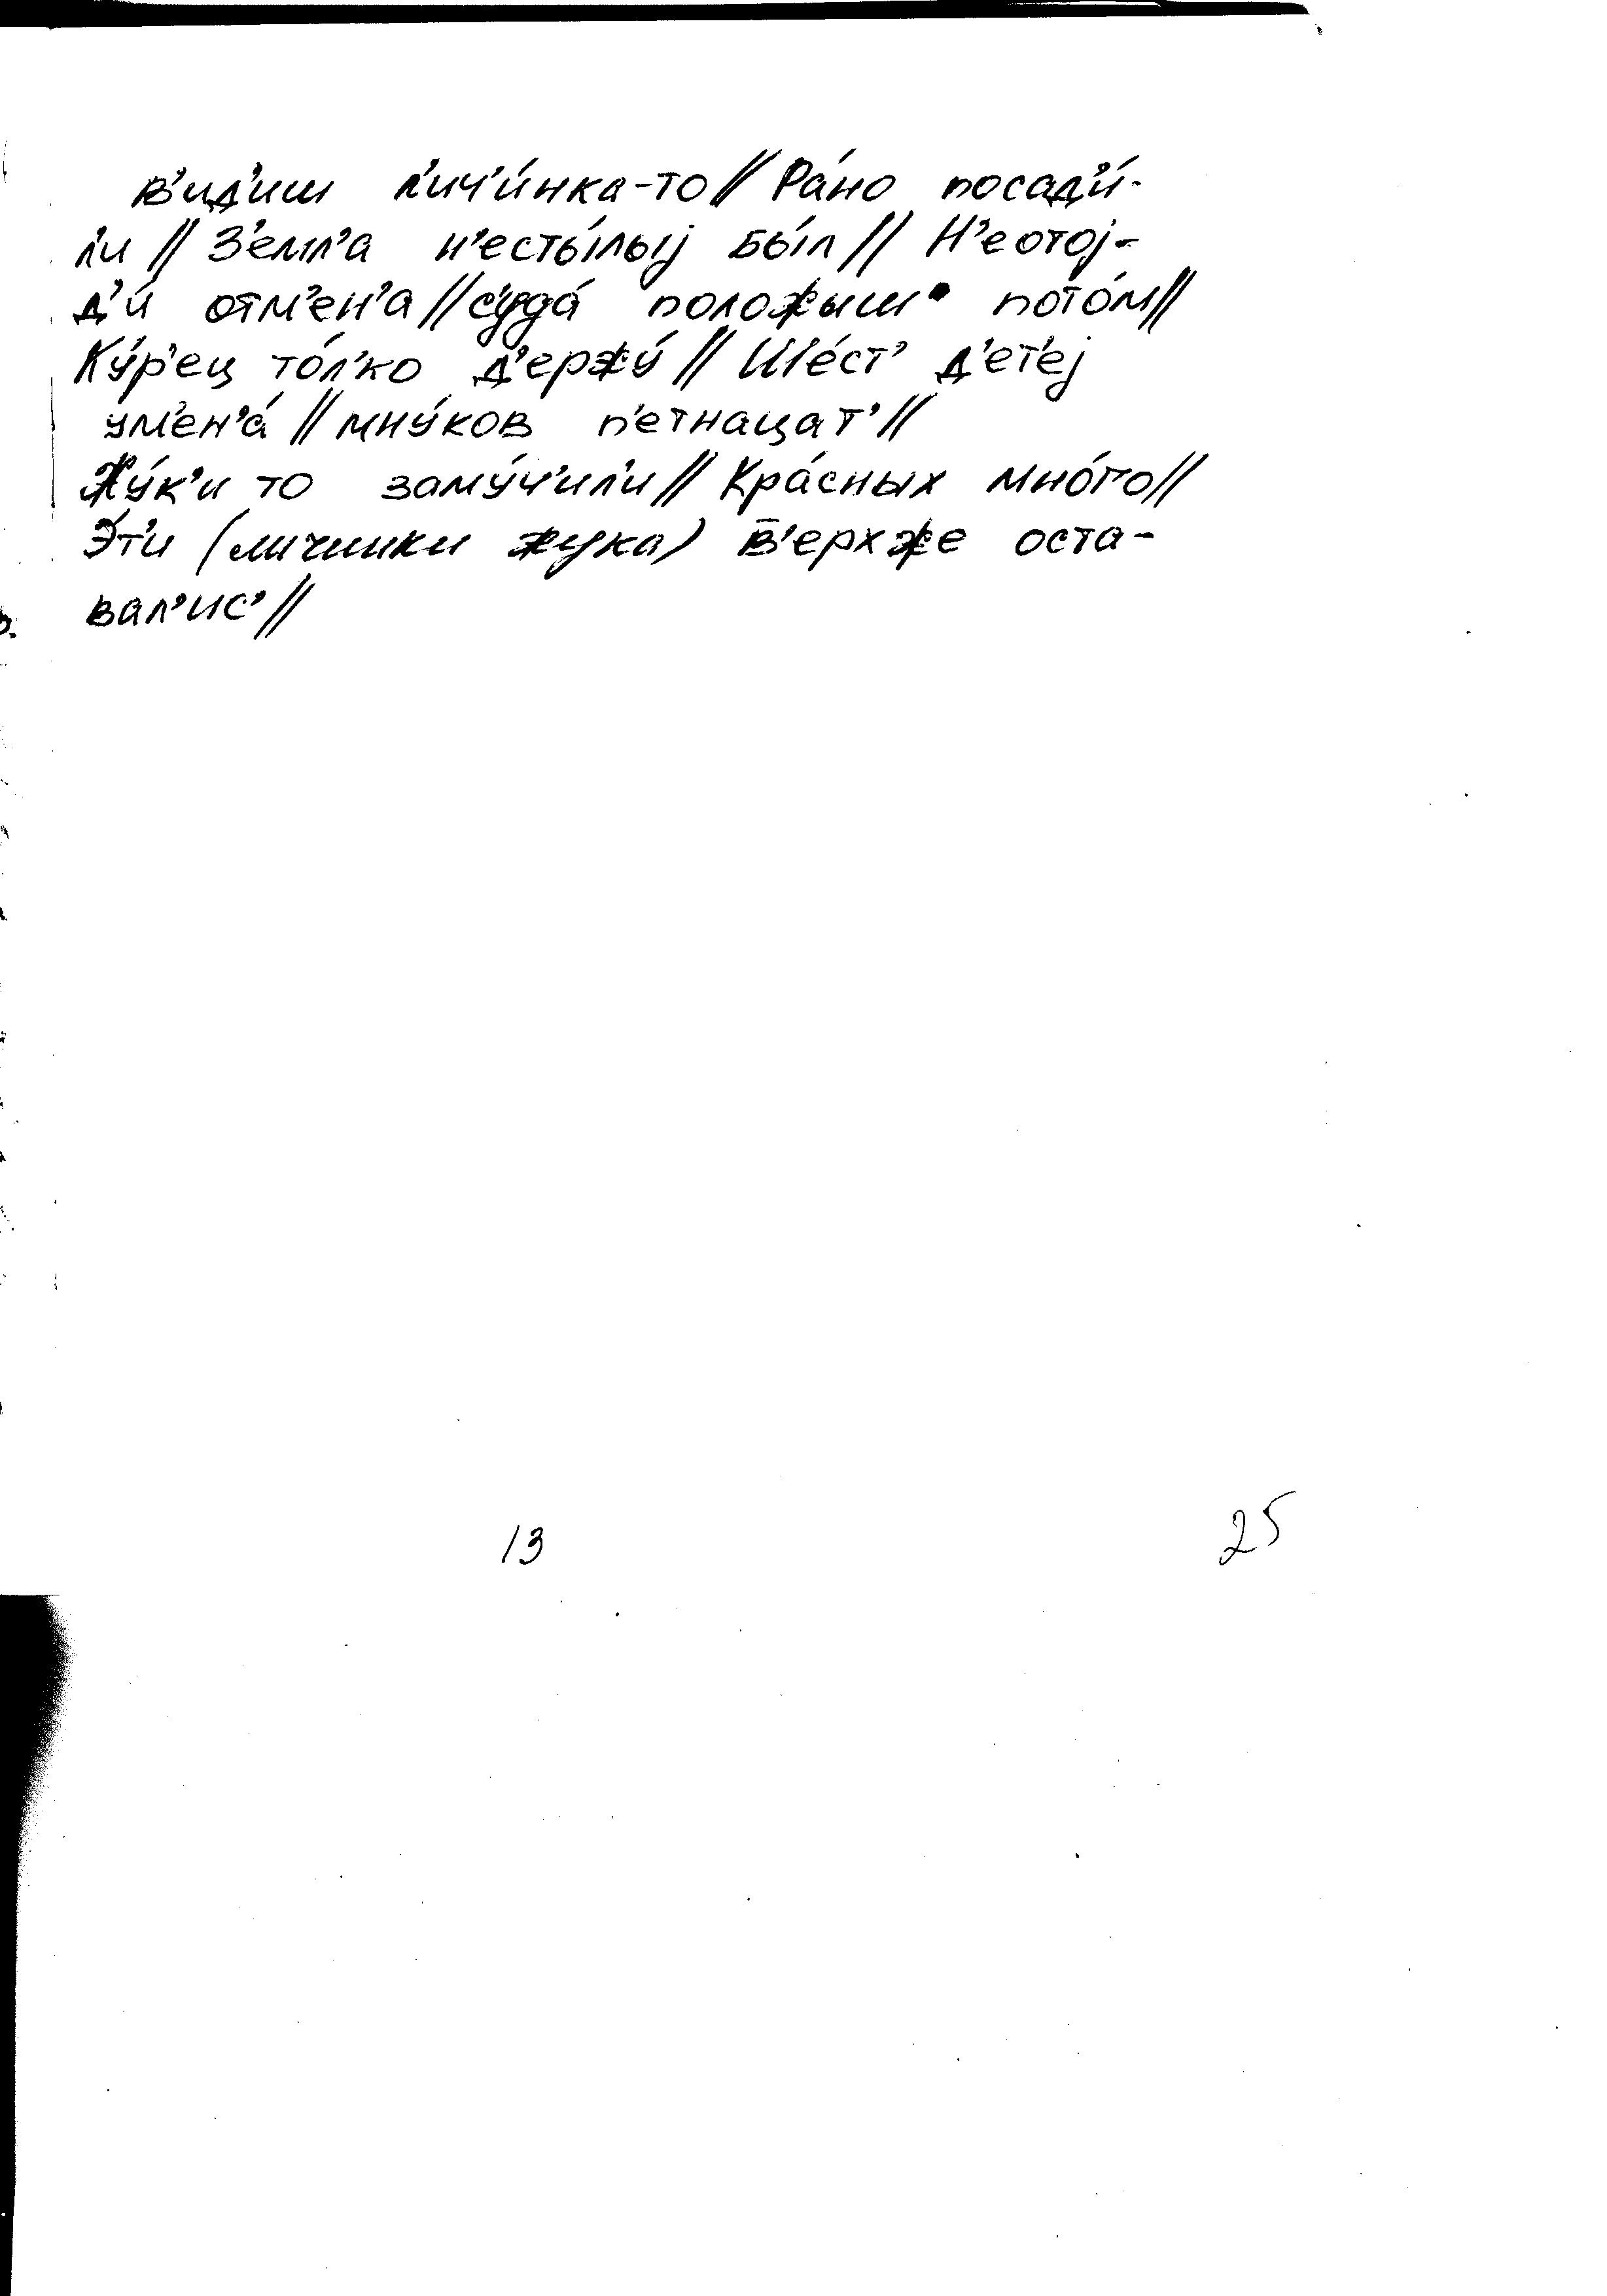 в'ид'иш л'ич'и́нка-то // Ра́но посад'и́-
л'и // З'емл'а н'есты́лыј бы́л // Н'еотој-
д'и́ отм'ен'а // с'уда́ положыш потом //
Ку́р'ец то́л'ко д'ержу́ // Ше́ст' д'ет'еј
ум'ен'а́ // мну́ков п'етнацат' //
Жу́к'и то заму́ч'ил'и // Кра́сных мно́го //
Э́т'и (личинки жука) в̄'ерхже оста-
вал'ис' //
13
25